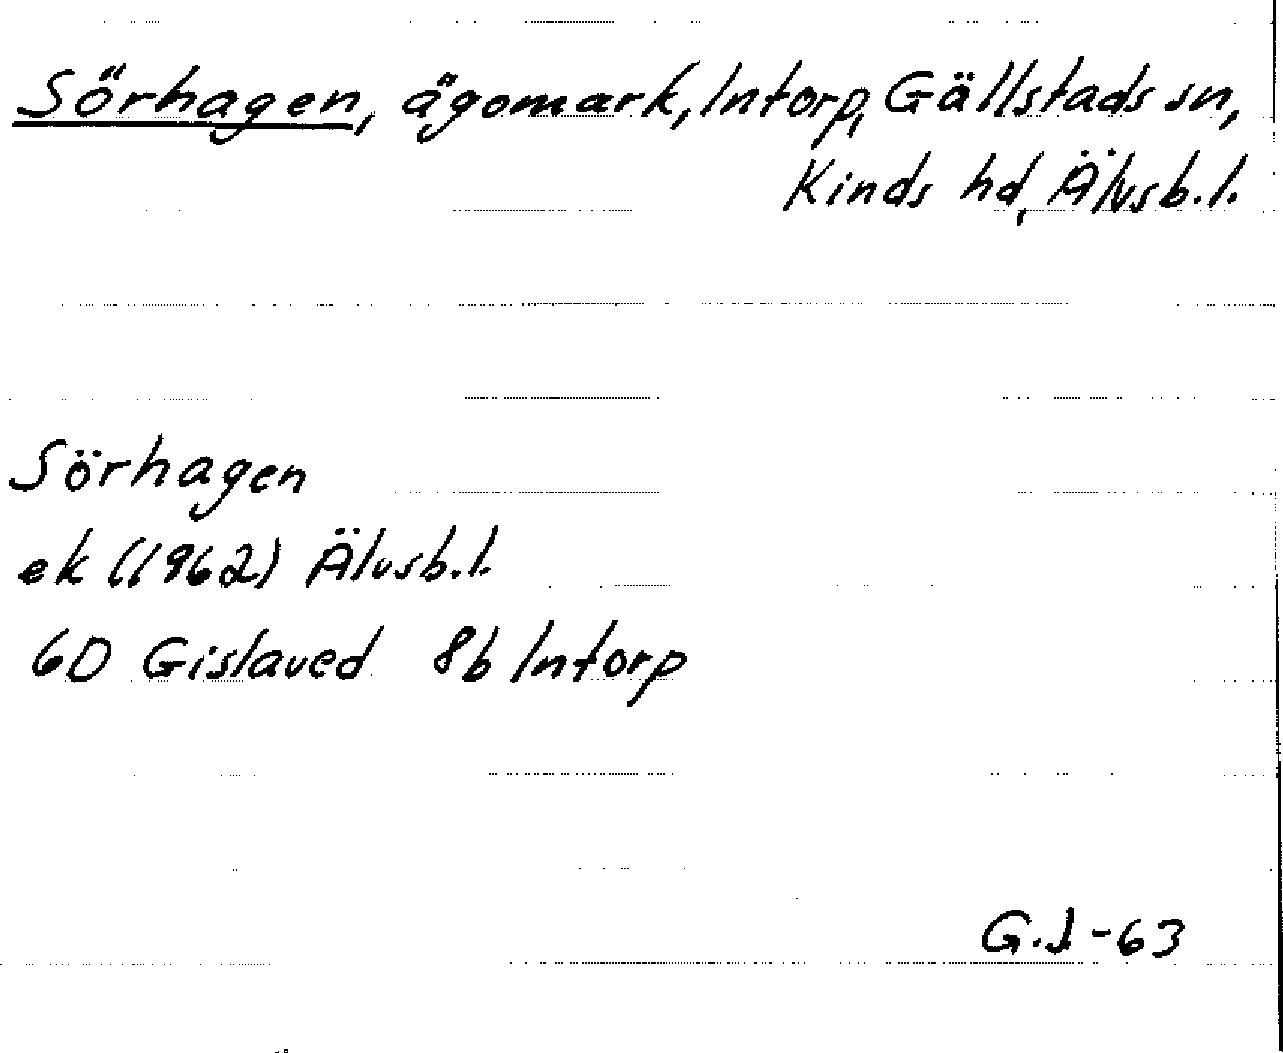 Sörhagen, ägomark, Intorp, Gällstads sn,
Kinds hd, Älvsb.l.
Sörhagen
ek (1962) Älvsb.l.
6D Gislaved 8b Intorp
G.J-63